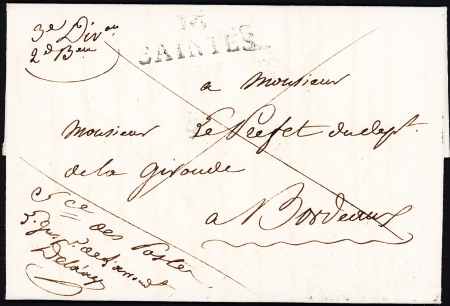 3e Divon
2d Beau
16
SAINTES
a Monsieur
Monsieur Le Préfet du dept.
de la Gironde
a Bordeaux
Sce des Postes
Delánoy